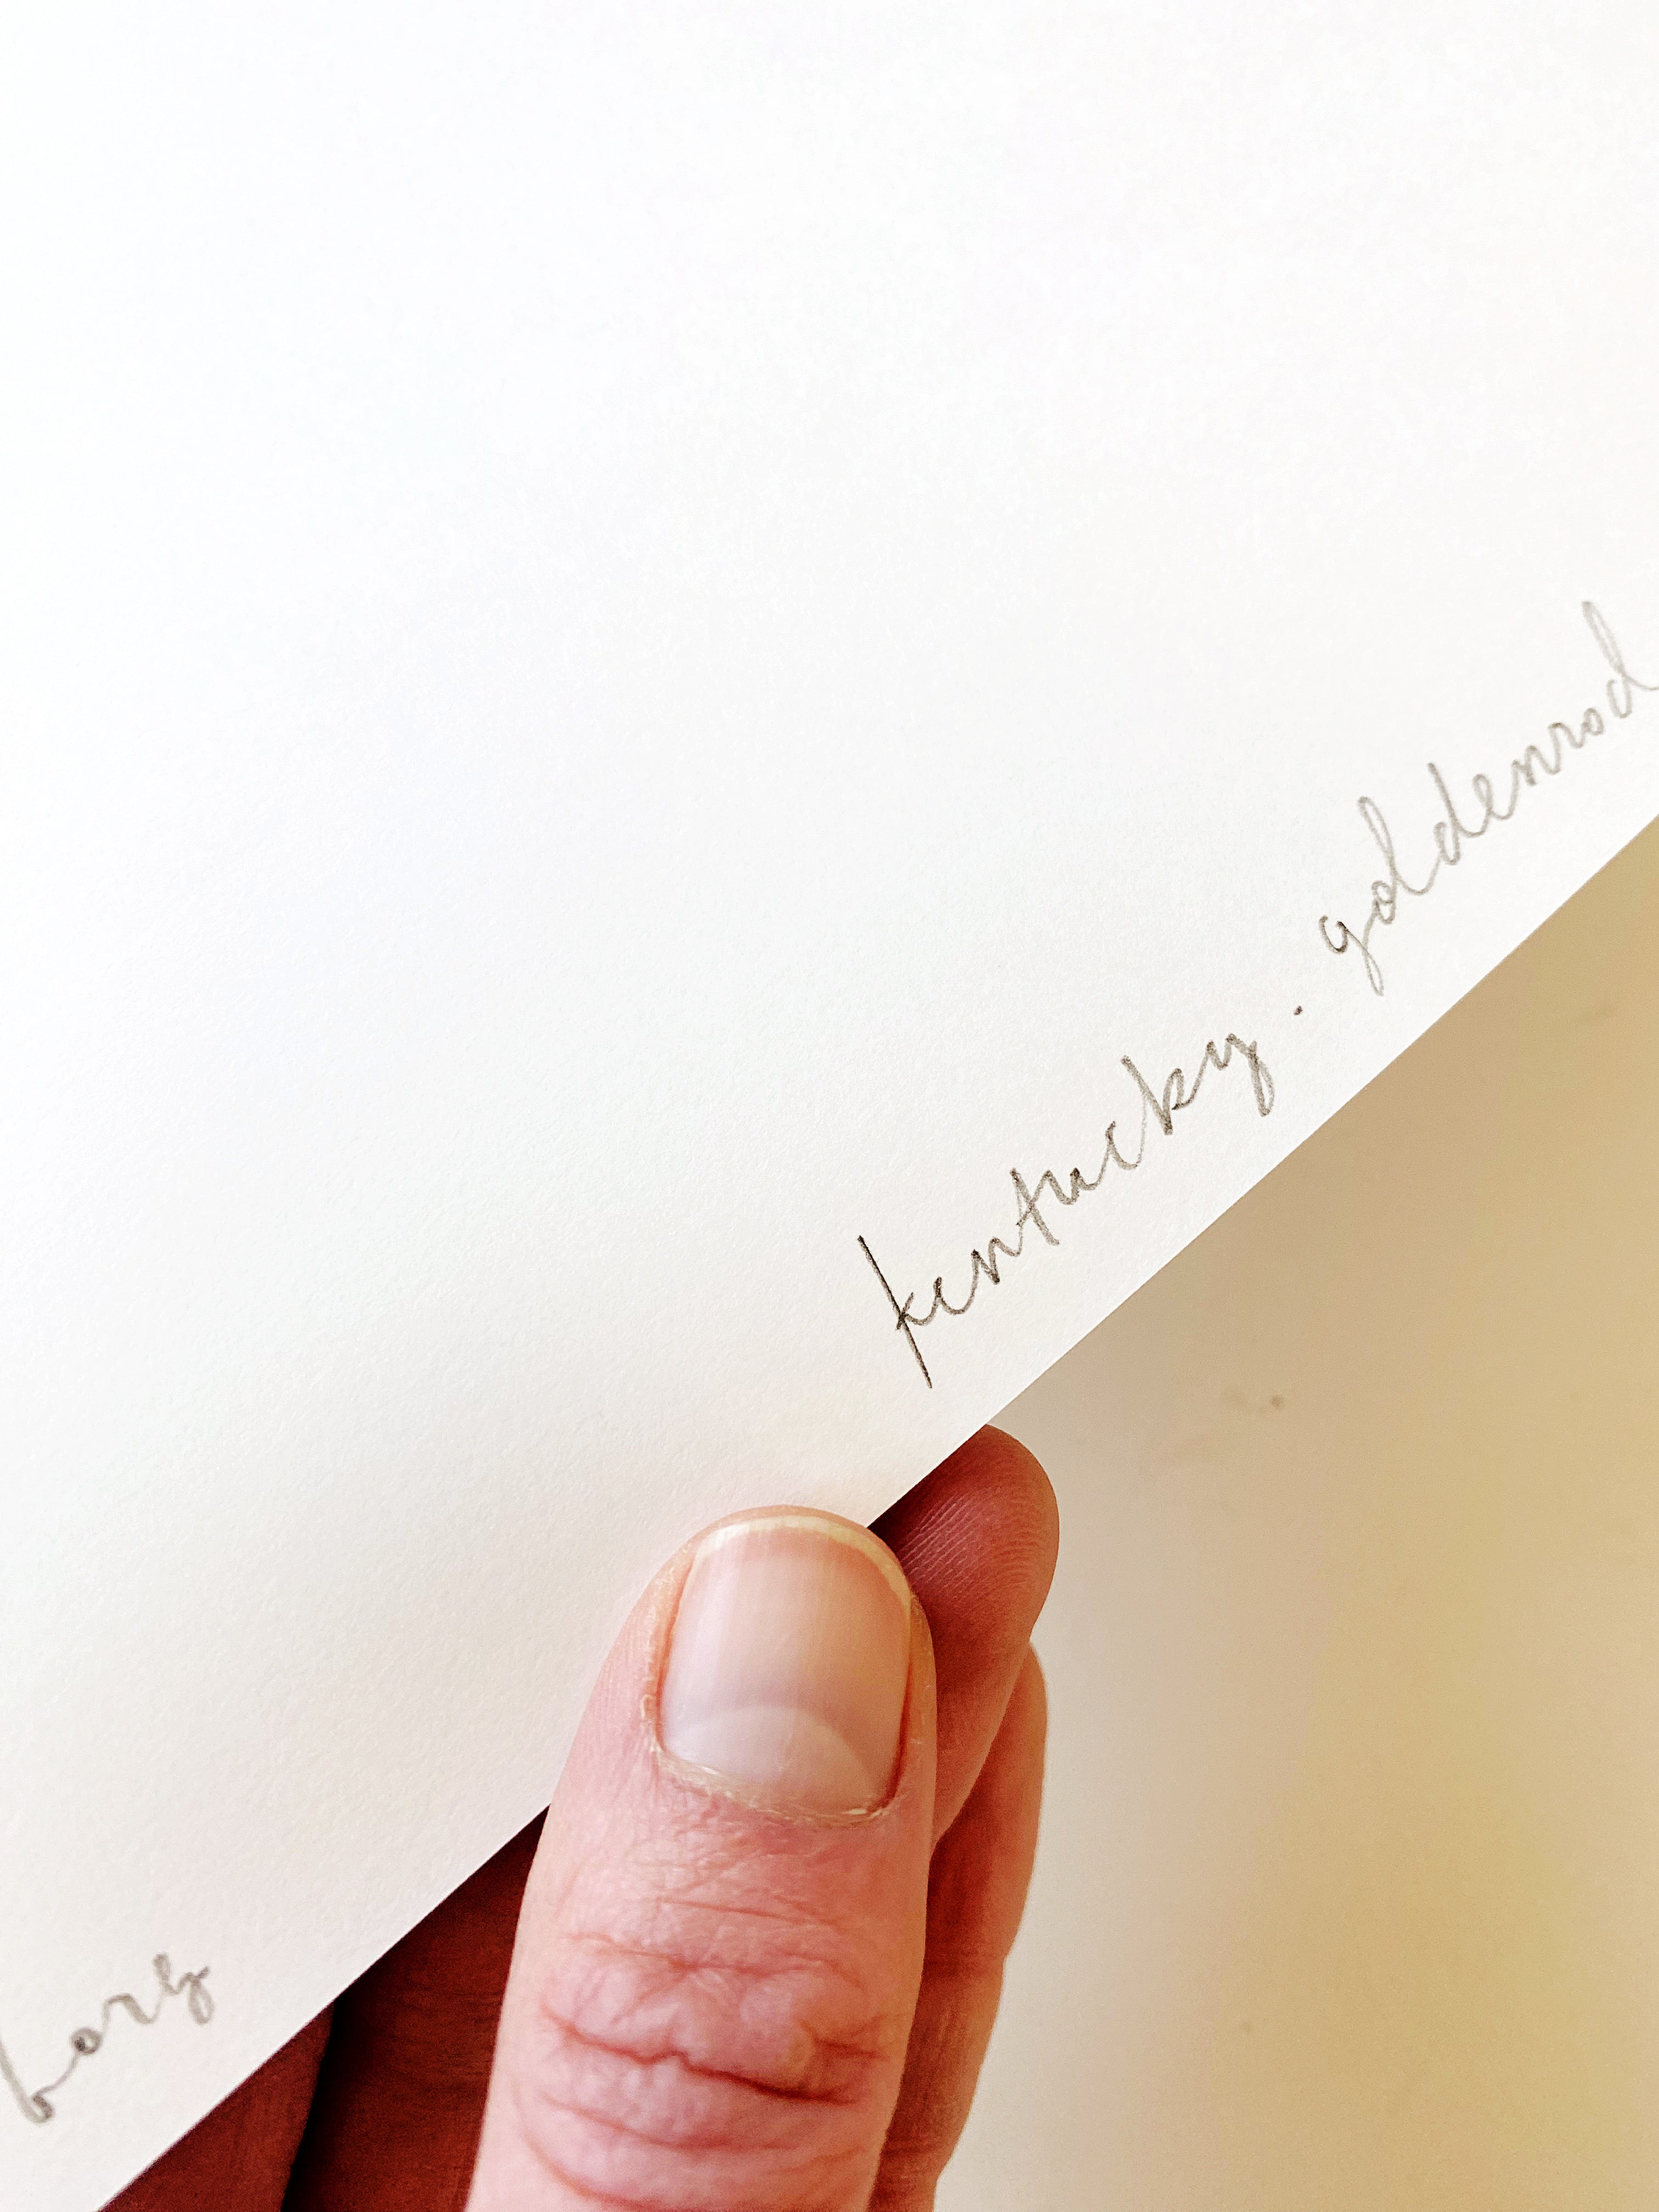 kentucky. goldenrod